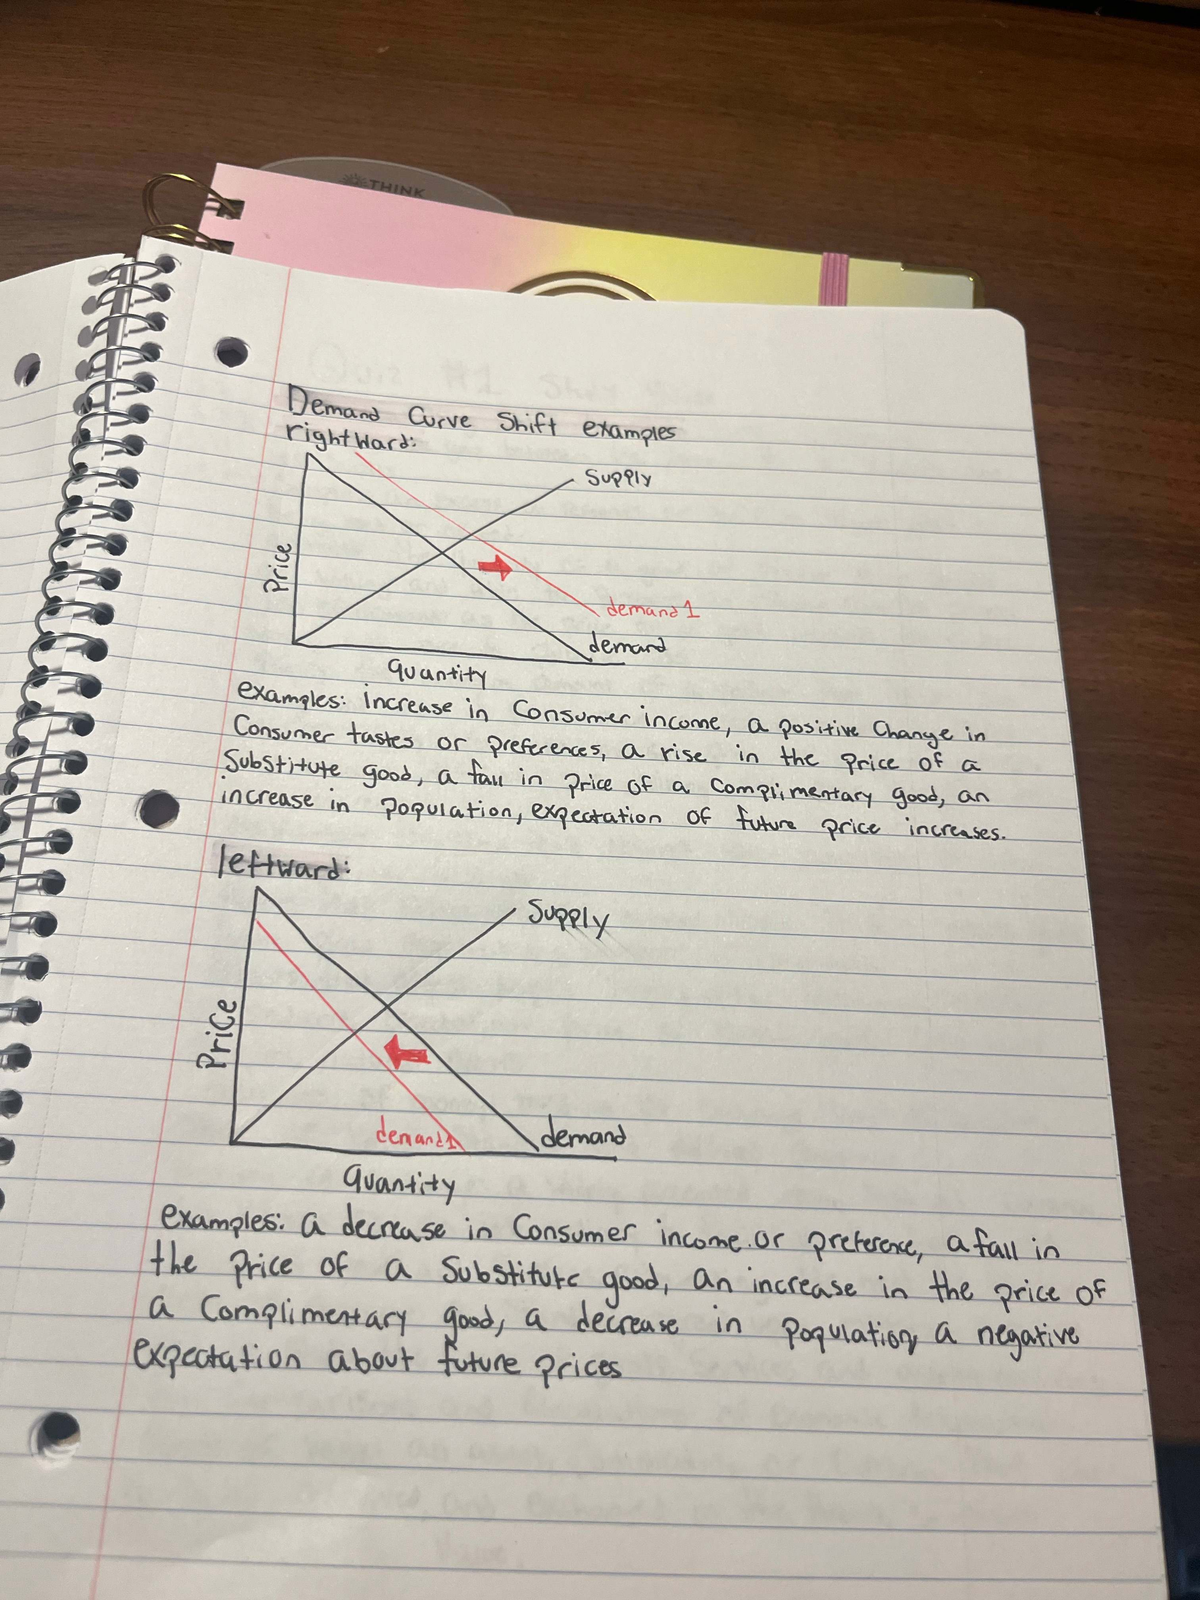 THINK
Demand Curve Shift examples
rightward:
Supply
Price
demand1
demand
quantity
examples: increase in Consumer income, a positive Change in
Consumer tastes or preferences, a rise in the price of a
Substitute good, a fall in price of a Complimentary good, an
increase in population, expectation of future price increases.
leftward:
Supply
Price
demand1
demand
quantity
examples: a decrease in Consumer income or preference, a fall in
the price of a Substitute good, an increase in the price of
a Complimentary good, a decrease in population, a negative
expectation about future prices